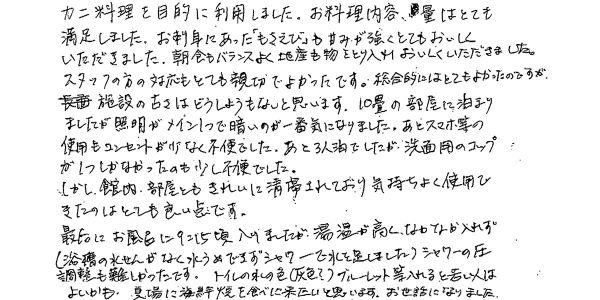 カニ料理を目的に利用しました。お料理内容、量はとても
満足しました。お刺身にあった「もさえび」も甘みが強くとてもおいしく
いただきました。朝食もバランスよく地産も物をとり入れおいしくいただきました。
スタッフの方の対応もとても親切でよかったです。総合的にはとてもよかったのですが、
施設の古さはどうしようもないと思います。10畳の部屋に泊まり
ましたが照明がメイン1つで暗いのが一番気になりました。あとスマホ等の
使用もコンセントが少なく不便でした。あと3人泊でしたが、洗面用のコップ
が1つしかなかったのも少し不便でした。
しかし、館内、部屋ともきれいに清掃されており気持ちよく使用で
きたのはとても良い点です。
最后にお風呂に9:15頃入りましたが湯温が高く、なかなか入れず
(浴槽の水せんがなく水うめできずシャワーで水を足しました)シャワーの圧
調整も難しかったです。トイレの水の色(灰色?)ブルーレット等入れると若い人は
よいかも。夏場に海鮮焼を食べに来たいと思います。お世話になりました。